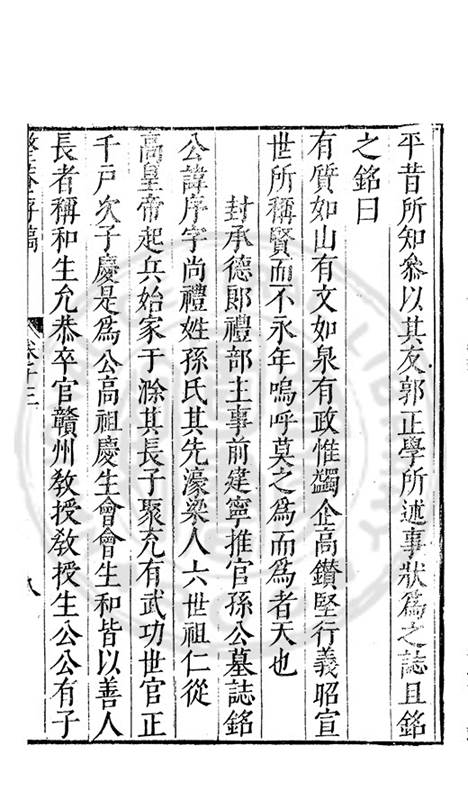 平昔所知參以其友郭正學所述事狀為之誌且銘
之銘曰
有質如山有文如泉有政惟蠲企高鑚堅行義昭宣
世所稱賢而不永年嗚呼莫之為而為者天也
封承德郎禮部主事前建寧推官孫公墓誌銘
公諱序字尚禮姓孫氏其先濠梁人六世祖仁從
高皇帝起兵始家于滁其長子聚充有武功世官正
千戶次子慶是為公高祖慶生會會生和皆以善人
長者稱和生允恭卒官贛州敎授敎授生公公有子
整菴存稿
卷十三
八